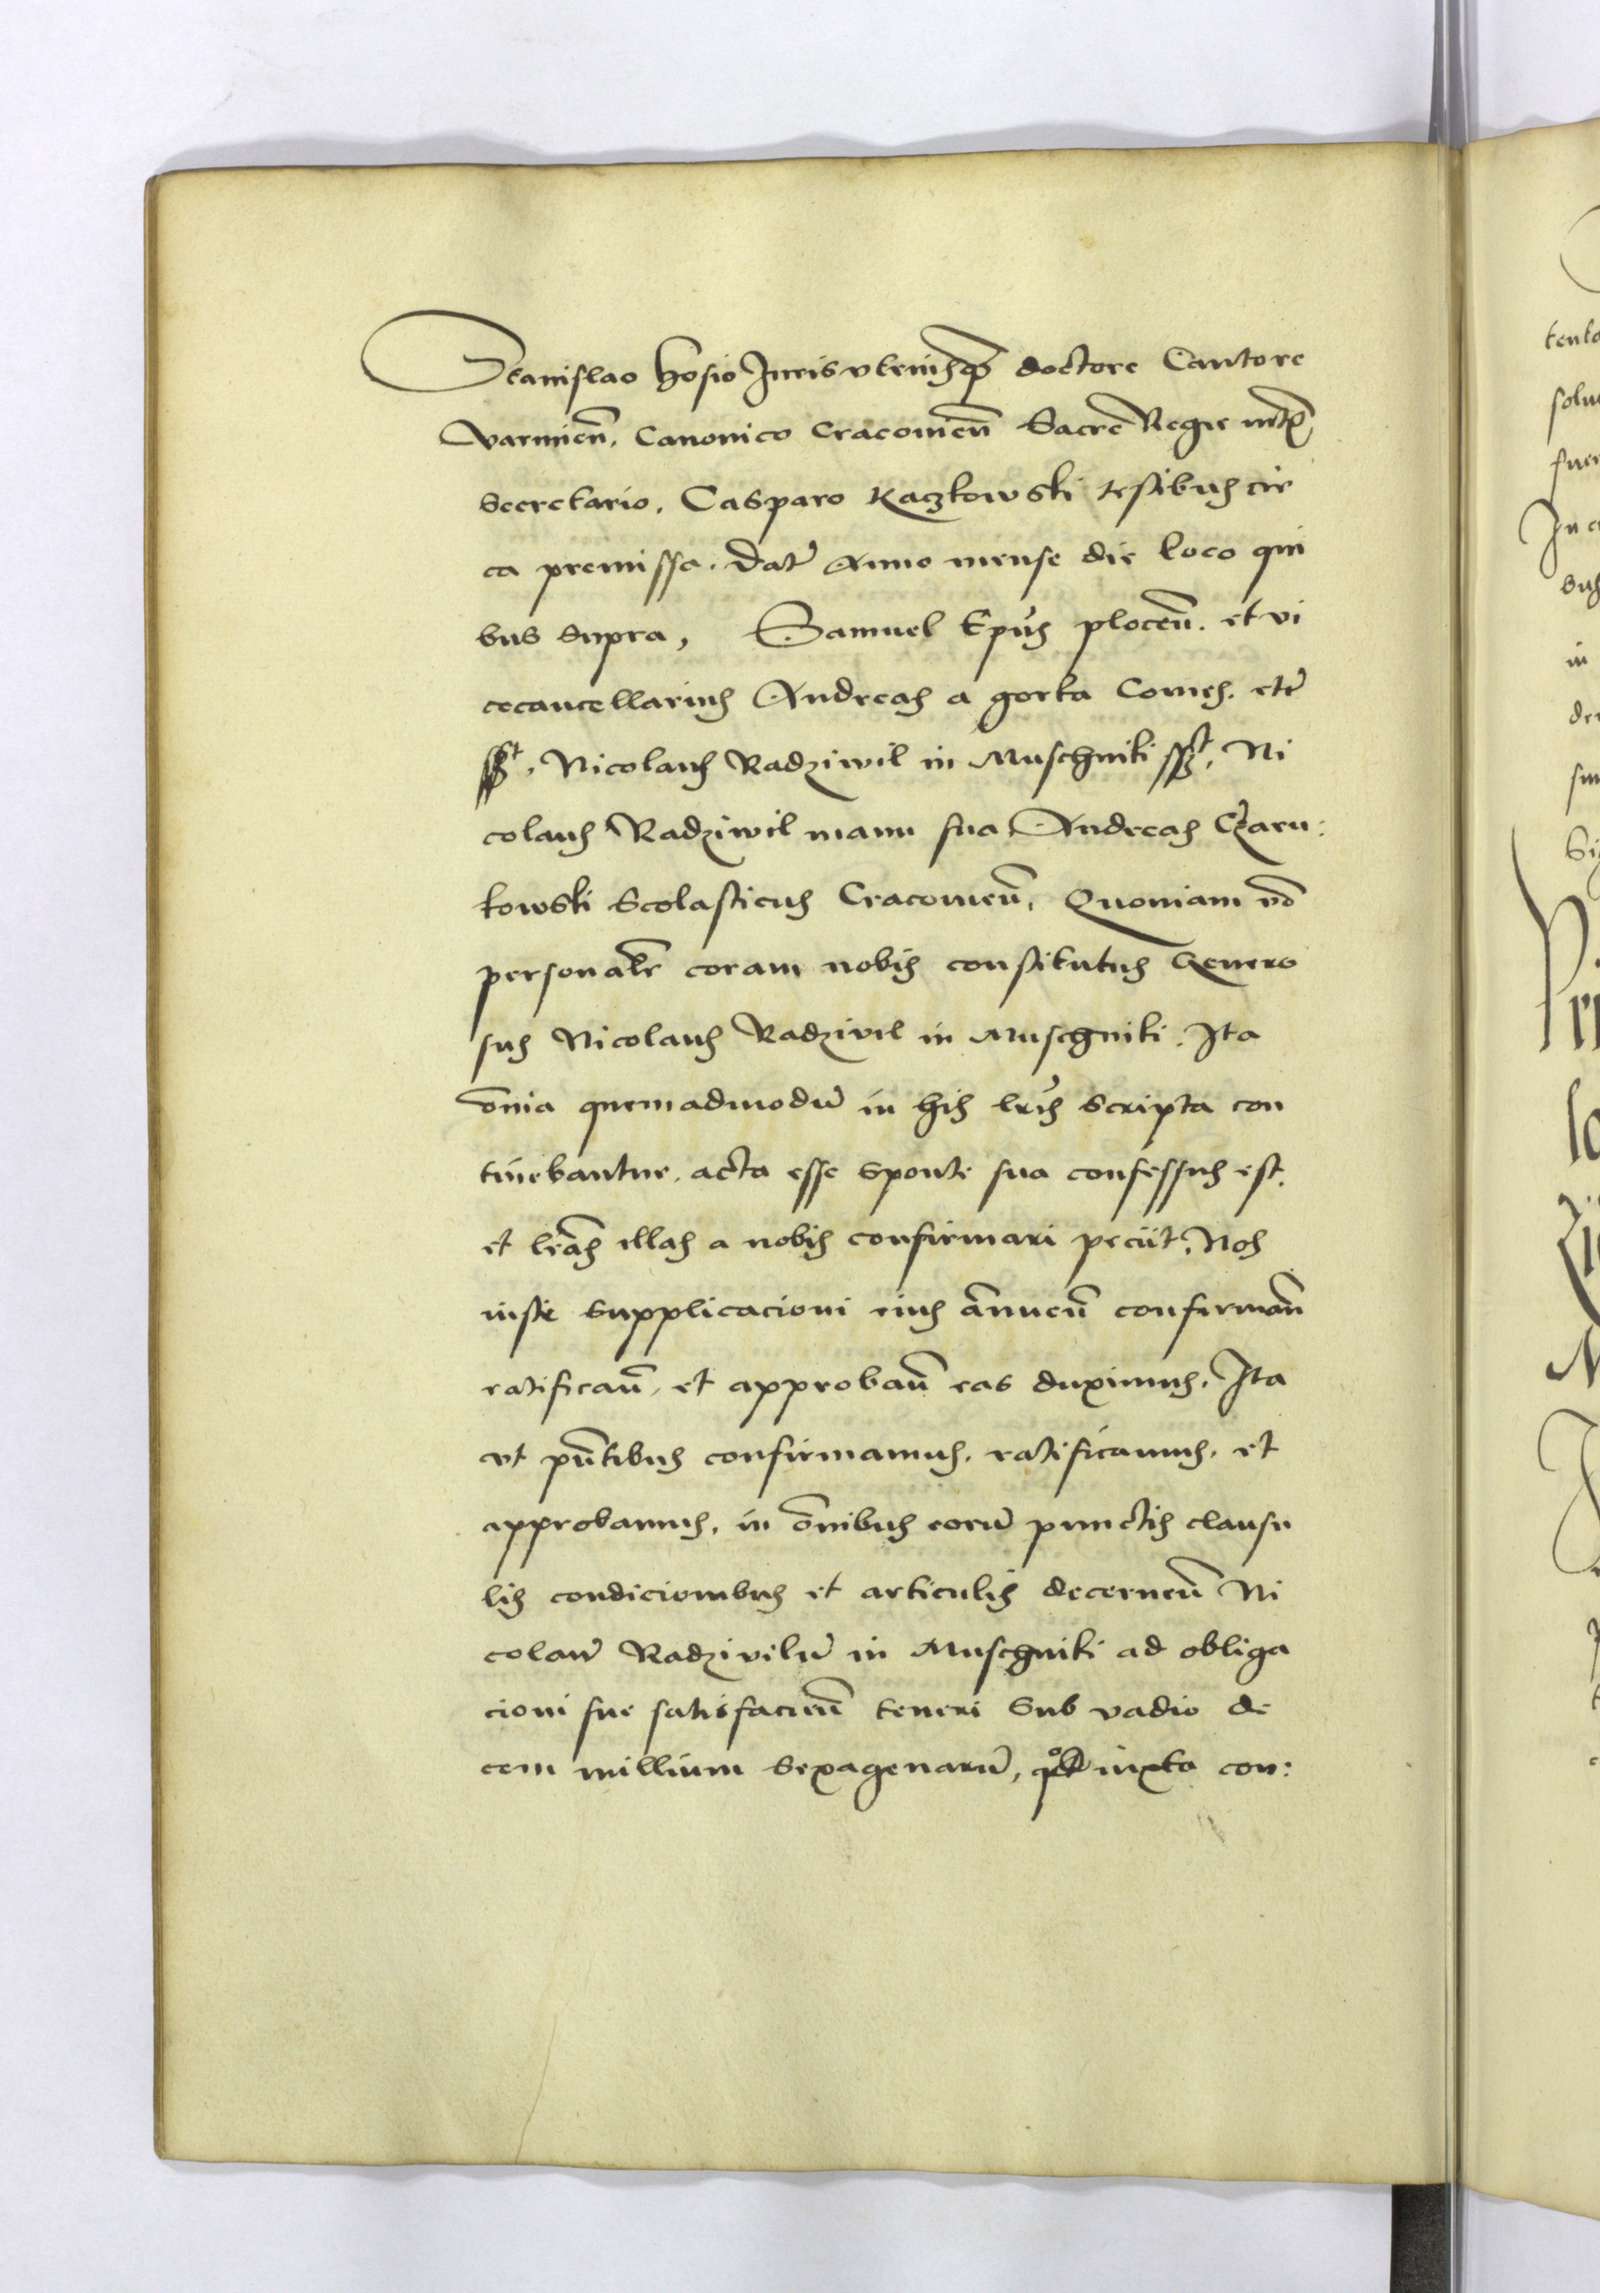 Stanislao Hosio Juris vtriusq̃ doctore Cantore
Varmieñ. Canonico Cracovieñ Sacre Regie mt̃s
Secretario. Casparo Kaczkowski testibus cir
ca premissa. Dat̃ Anno mense die loco qui
bus supra, Samuel Ep̃us ploceñ. et vi
cecancellarius Andreas a gorka Comes. etc̃
sst. Nicolaus Radziwil in Muschniki sst. Ni
colaus Radziwil manu sua Andreas Czarn:
kowski Scolasticus Cracovieñ. Quoniam vo
personalr̃ coram nobis constitutus Genero
sus Nicolaus Radzivil in Muschniki. Ita
om̃ia quemadmodũ in his lr̃is scripta con
tinebantur. acta esse sponte sua confessus est.
et lr̃as illas a nobis confirmari peciit. Nos
iuste supplicacioni eius ãnueñ confirmañ
ratificañ. et approbañ eas duximus. Ita
vt pñtibus confirmamus. ratificamus. et
approbamus. in om̃ibus eorũ punctis clausu
lis condicionibus et articulis decerneñ Ni
colaũ Radzivilũ in Muschniki ad obliga
cioni sue satisfacieñ teneri sub vadio de
cem millium sexagenarũ, iuxta con: